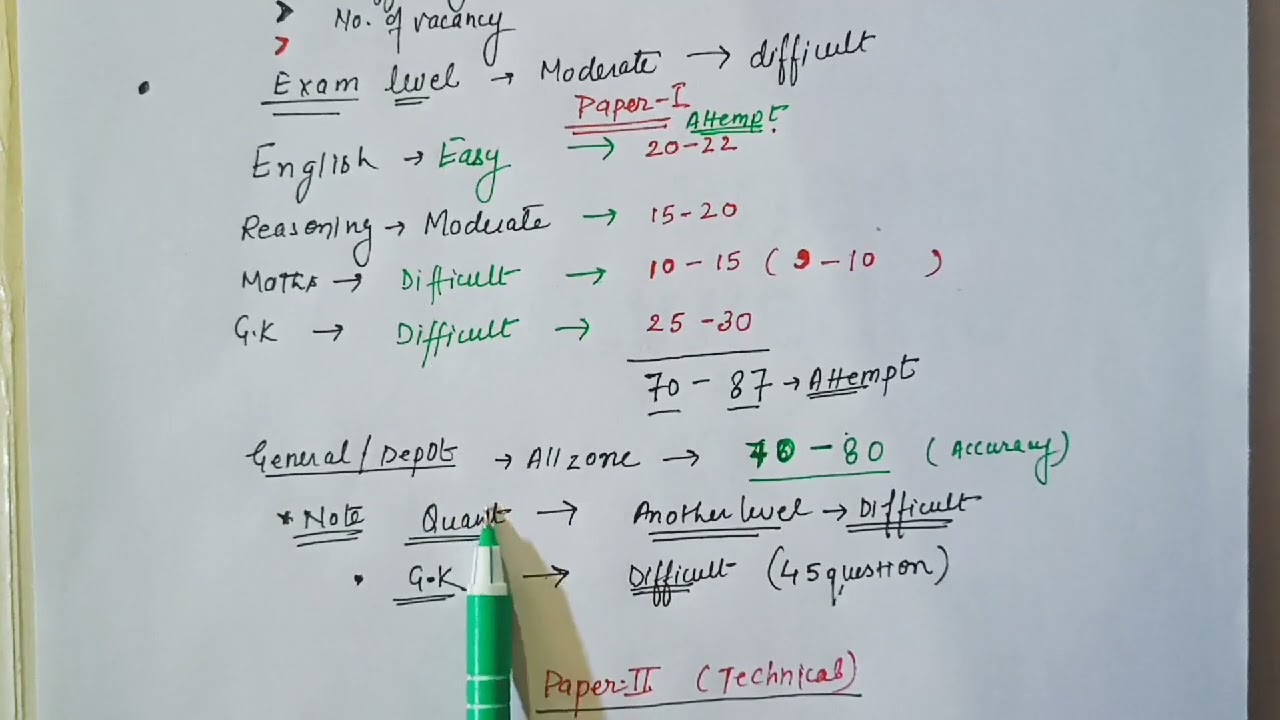 No. of vacancy
Exam level → Moderate → difficult
Paper-I
Attempt
English → Easy → 20-22
Reasoning → Moderate → 15-20
Maths → Difficult → 10-15 (9-10 )
G.K → Difficult → 25-30
70-87 → Attempt
General/Depot → All zone → 70-80 (Accuracy)
*Note Quant → Another level → Difficult
• G.K → Difficult (45 question)
Paper-II (Technical)